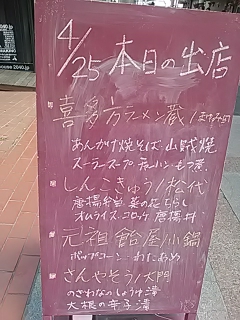 4/25 本日の出店
喜多方ラーメン蔵/
あんかけ焼そば・山賊焼
スーラースープ チャーハン・もつ煮
しんこきゅう/松代
唐揚弁当 菜の花ちらし
オムライス・コロッケ 唐揚丼
元祖 飴屋/小鍋
ポップコーン・わたあめ
さんやそう/大門
のざわなのしょうゆ漬
大根の辛子漬